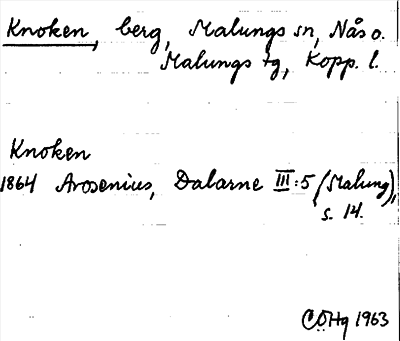 Knoken, berg, Malungs sn, Nås o.
Malungs tg, Kopp. l.
Knoken
1864 Arosenius, Dalarne III:5 (Malung),
s. 14.
CÖHg 1963